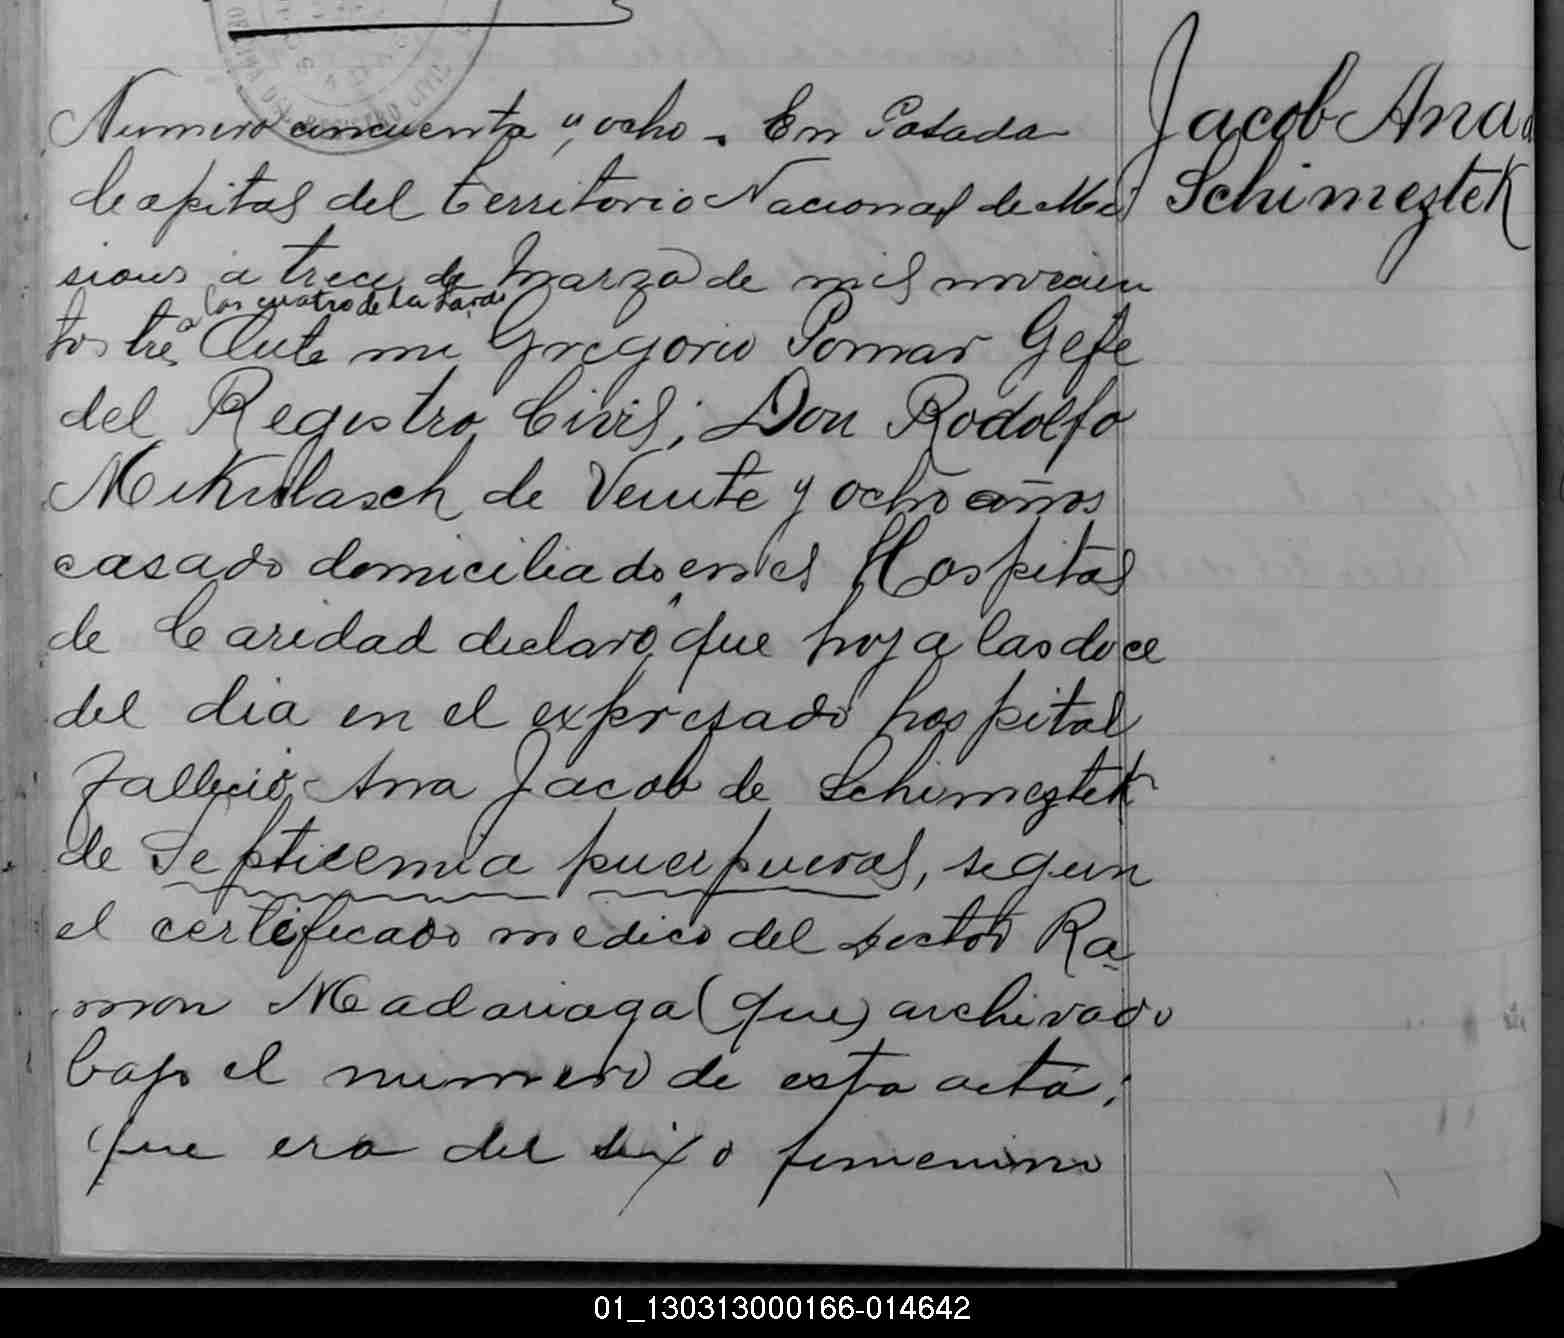 Numero cincuenta y ocho. En Posadas
Capital del territorio Nacional de Mi
siones a trece de Marzo de mil novecien
a las cuatro de la tarde
tos tres Ante mi Gregorio Pomar Gefe
del Registro Civil; Don Rodolfo
Mikulasch de Veinte y ocho años
casado domiciliado en el Hospital
de Caridad declaró que hoy a las doce
del dia en el expresado hospital
falleció Ana Jacob de Schimeztek
de Septicemia puerpueral, segun
el certificado medico del doctor Ra
mon Madariaga (que) archivado
bajo el numero de esta acta;
que era del sexo femenino
Jacob Ana de
Schimeztek
01_130313000166-014642